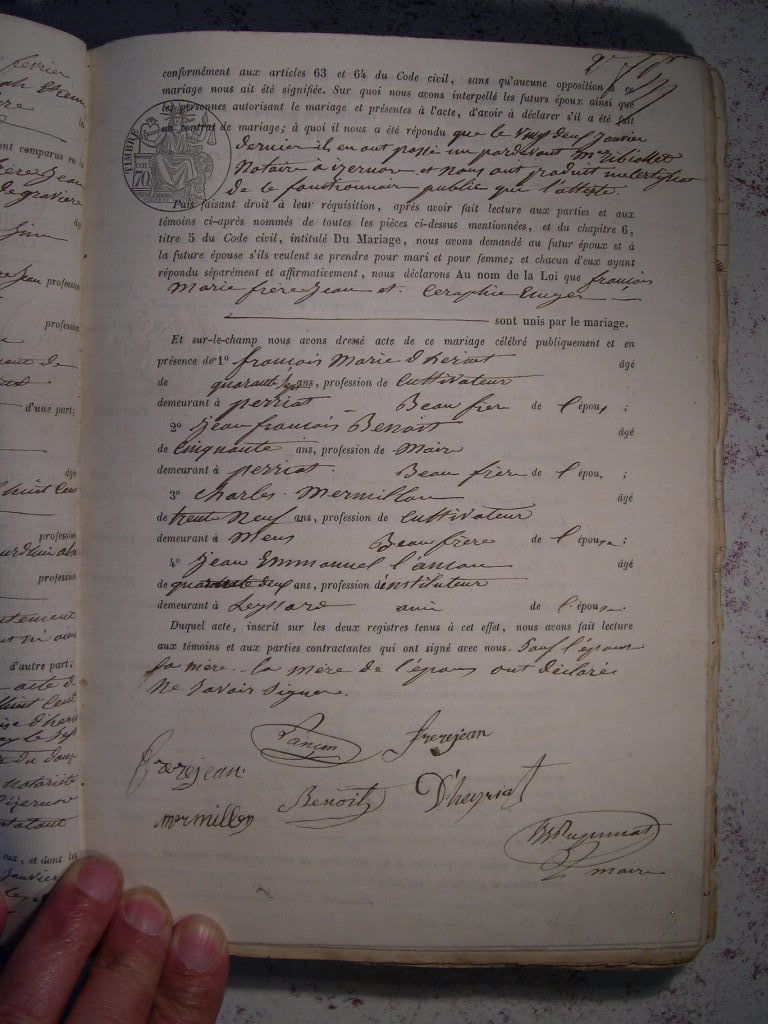 février
conformément aux articles 63 et 64 du Code civil, sans qu'aucune opposition à ce
mariage nous ait été signifiée. Sur quoi nous avons interpellé les futurs époux ainsi que
les personnes autorisant le mariage et présentes à l'acte, d'avoir à déclarer s'il a été fait
un contrat de mariage; à quoi il nous a été répondu que le vingt deux Janvier
dernier il en ont passé un pardevant Me
Notaire à izernore et nous ont produit un certificat
de ce fonctionnair public qui l'atteste.
TIMBRE
70
Puis faisant droit à leur réquisition, après avoir fait lecture aux parties et aux
témoins ci-après nommés de toutes les pièces ci-dessus mentionnées, et du chapitre 6,
titre 5 du Code civil, intitulé Du Mariage, nous avons demandé au futur époux et à
la future épouse s'ils veulent se prendre pour mari et pour femme; et chacun d'eux ayant
répondu séparément et affirmativement, nous déclarons Au nom de la Loi que françois
Marie frère Jean et Ceraphie
sont unis par le mariage.
Et sur-le-champ nous avons dressé acte de ce mariage célébré publiquement et en
présence de 1° françois Marie d'heriat âgé
de quarante ans, profession de Cultivateur
demeurant à perriat Beau frere de l'épou, ;
2° Jean françois Benoit âgé
de cinquante ans, profession de Maire
demeurant à perriat. Beau frère de l'épou, ;
3° Charles Mermillon âgé
de trente Neuf ans, profession de Cultivateur
demeurant à Mens Beau frère de l'épouse;
4° Jean Emmanuel l'ançon âgé
de quarante deux ans, profession d'instituteur
demeurant à Leyssard ami de l'épouse
Duquel acte, inscrit sur les deux registres tenus à cet effet, nous avons fait lecture
aux témoins et aux parties contractantes qui ont signé avec nous. Sauf l'épouse
sa mère.. la mère de l'époux ont déclarés
Ne Savoir Signer.
Lançon frerejean
frerejean
mermillon Benoit D'heyriat
maire
profession
profession
d'une part;
âgé
profession
profession
d'autre part;